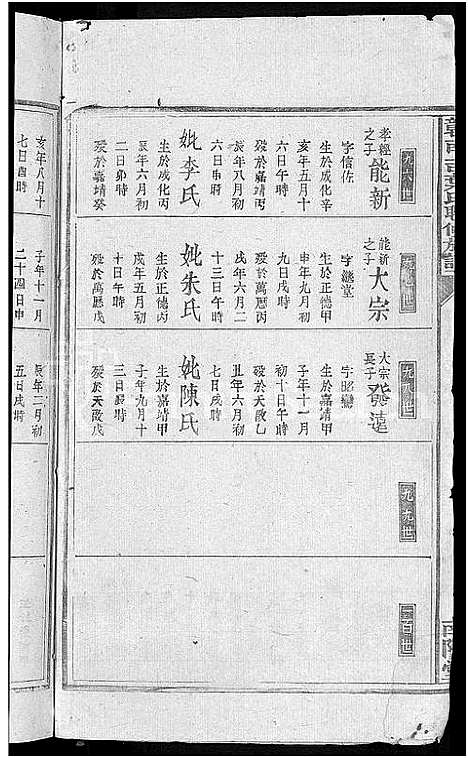 九六世
孝經
之子
能新
字信佐
生於成化辛
亥年五月十
六日午時
歿於嘉靖丙
辰年八月初
六日申時
妣李氏
生於成化丙
辰年六月初
二日卯時
歿於嘉靖癸
亥年八月十
七日酉時
九七世
能新
之子
大宗
字繼堂
生於正德甲
申年九月初
九日戌時
歿於萬曆丙
戌年六月二
十三日午時
妣朱氏
生於正德丙
戌年五月初
十日午時
歿於萬曆戊
子年十一月
二十四日申
九八世
大宗
長子
發達
字昭巒
生於嘉靖甲
子年十一月
初十日午時
歿於天啟乙
丑年六月初
七日戌時
妣陳氏
生於嘉靖甲
子年九月十
三日辰時
歿於天啟戊
辰年二月初
五日戌時
九九世
一百世
南陽堂